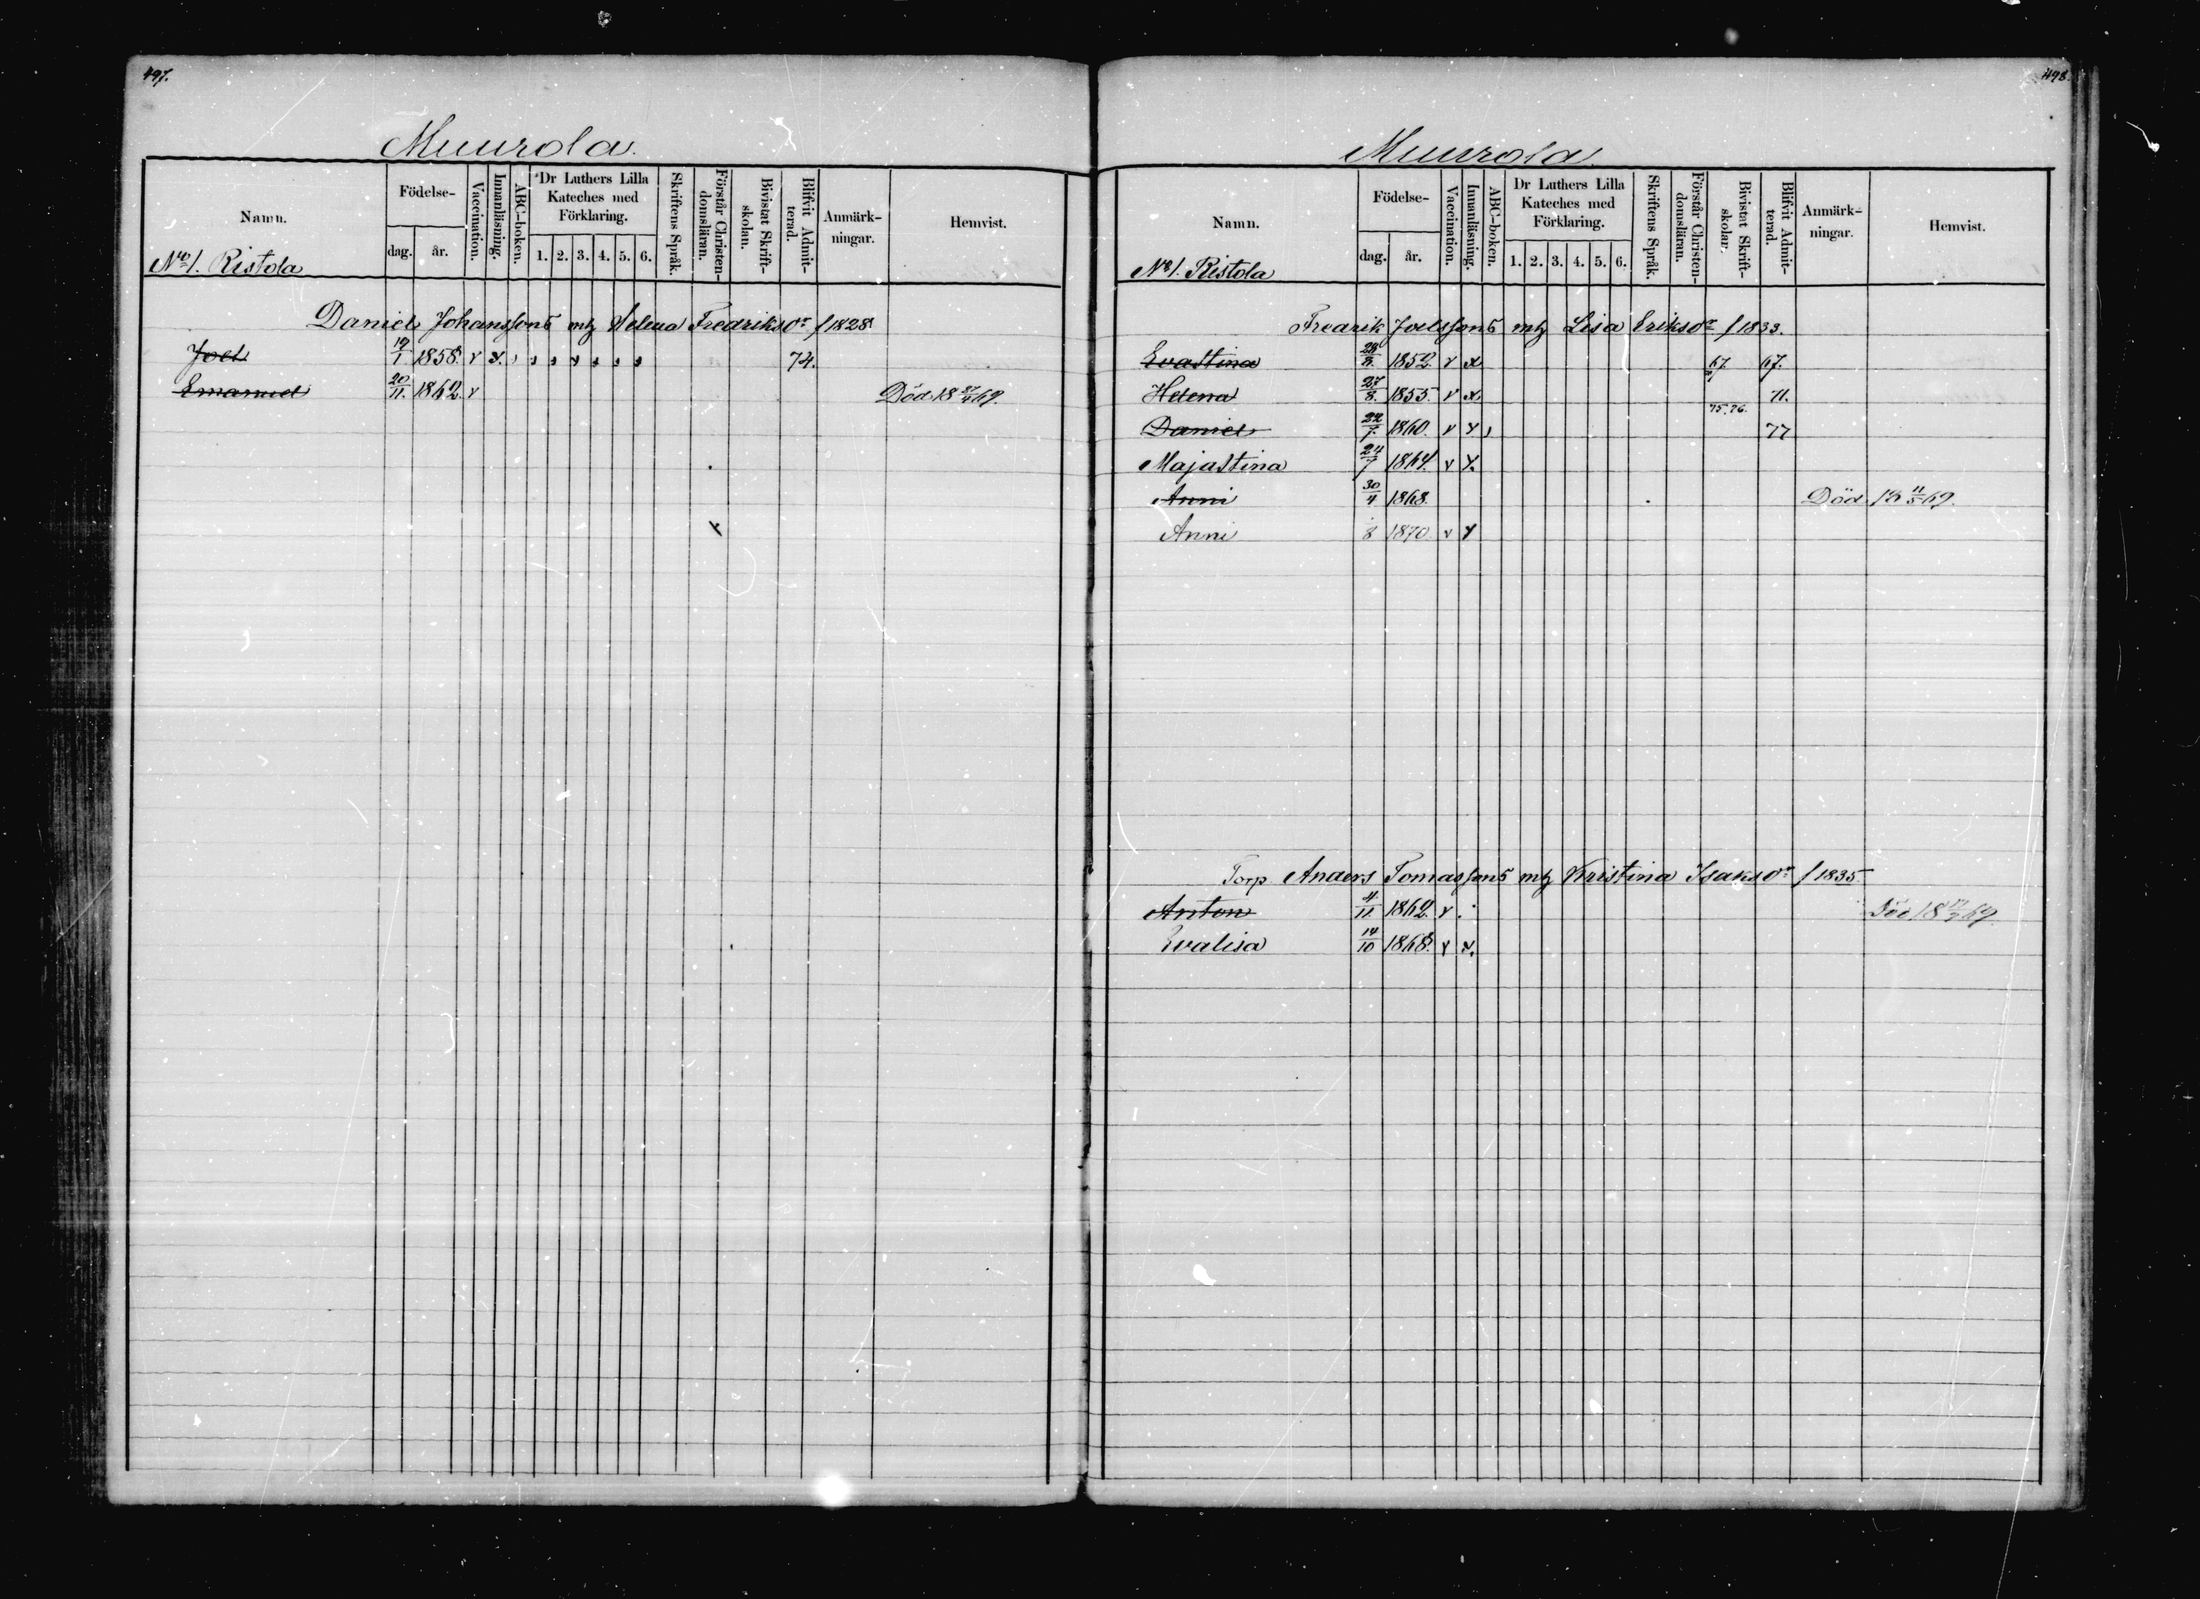 497.
Muurola.
Namn.
Födelse-
dag. år.
Vaccination.
Innanläsning.
ABC-boken.
Dr Luthers Lilla Kateches med Förklaring.
1. 2. 3. 4. 5. 6.
Skriftens Språk.
Förstår Christen-domsläran.
Bivistat Skrift-skolan.
Blifvit Admit-terad.
Anmärk-ningar.
Hemvist.
No 1. Ristola
Daniel Johanssons mh Helena Fredriksdr f 1828
Joel 19/1 1858. v x. , , , x , , , 74.
Emanuel 20/11. 1862. v Död 18 27/4 69.
498.
Muurola.
Namn.
Födelse-
dag. år.
Vaccination.
Innanläsning.
ABC-boken.
Dr Luthers Lilla Kateches med Förklaring.
1. 2. 3. 4. 5. 6.
Skriftens Språk.
Förstår Christen-domsläran.
Bivistat Skrift-skolar.
Blifvit Admit-terad.
Anmärk-ningar.
Hemvist.
No 1. Ristola
Fredrik Joelssons mh Lisa Eriksdr f 1833.
Evastina 28/8. 1852. v x 67. 67.
Helena 27/8. 1855. v x 71.
Daniel 22/7. 1860. v x , 75. 76. 77
Majastina 24/7 1864. v x.
Anni 30/4 1868. Död 18 11/5 69.
Anni 8 1870. v x
Torp Anders Tomassons mh Kristina Isaksdr f 1835
Anton 4/11 1862. v . Död 18 69.
Evalisa 14/10 1868. v x.